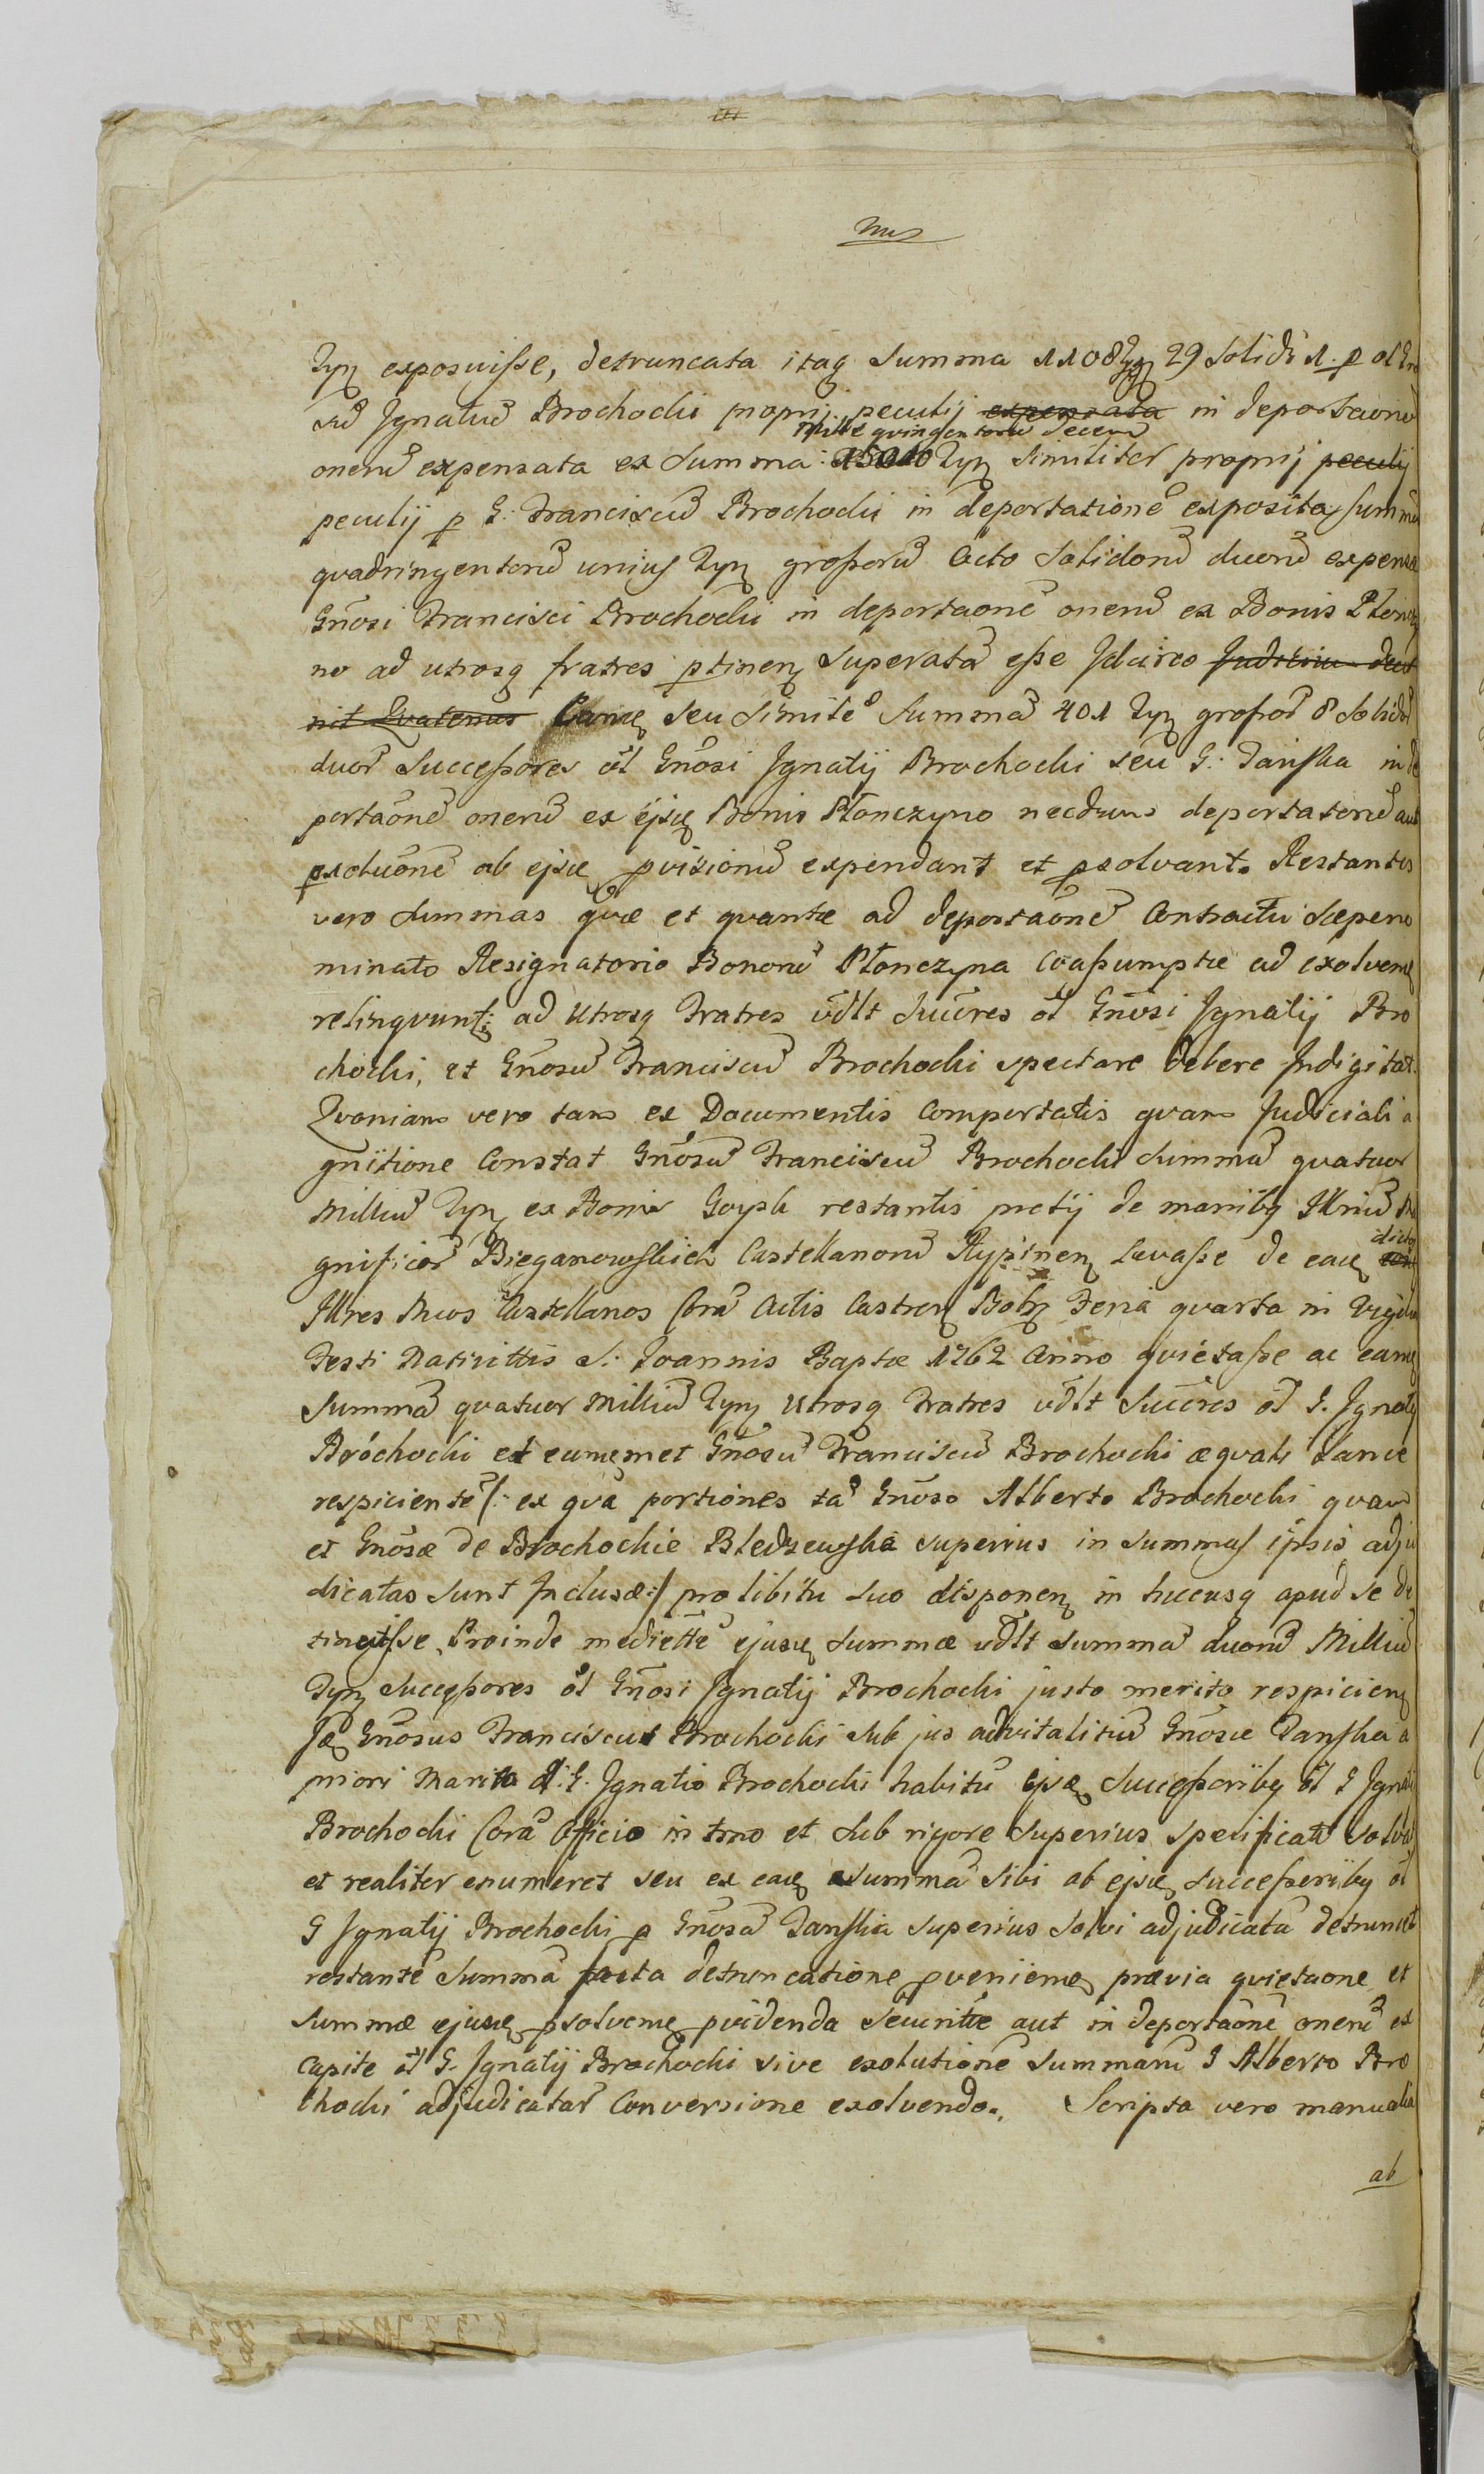 nus
Tyn exposuisse, detruncata itaq summa 1108 Tyn 29 solidi 1. p ol Gno
sū Ignatiū Brochocki proprij peculij expensata in deportaōnē
Mille quingentorū decem
onerū expensata ex summa: 1510 Tyn similiter proprij peculij
peculij p G: Franciscū Brochocki in deportationē exposita summā
quadringentorū unius Tyn grossorū octo solidorū duorū expensa
Gnōsi Francisci Brochocki in deportaōnē onerū ex Bonis Płoncz
no ad utrosq fratres ptinen superatā esse Idcirco Judiciu decer
nit Quatenus Eanđ seu similē summā 401 Tyn grossor 8 solidor
duor successores ōl Gnōsi Ignatij Brochocki seu G: Tańska in de
portaōnē onerū ex ijsđ Bonis Płonczyno necdum deportatorū aut
exoluōnē ab ejsđ pvisionū expendant et psolvant. Restantes
vero summas quæ et quantæ ad deportaōnē Contractu sæpeno
minato Resignatorio Bonorū Płonczyna Coassumptæ ad exolvenđ
relinquunt: ad utrosq Fratres vdlt succres ōl Gnōsi Ignatij Bro
chocki, et Gnosū Franciscū Brochocki spectare debere Indigitat.
Quoniam vero tam ex Documentis Comportatis quam Judiciali a
gnitione Constat Gnōsū Franciscū Brochocki summā quatuor
Milliū Tyn ex Bonis Goysk restantis pretij de manibq Illriū Ma
gnificor Bieganowskich Castellanorū Rypinen Levasse de eađ
Illres Mcos Castellanos Corā Actis Castren Bobr Feria quarta in Vigilia
Festi Nativittis S: Joannis Baptæ 1762 Anno quietasse ac eanđ
summā quatuor Milliū Tyn Utrosq Fratres vdlt succres ōl G. Ignatij
Brochocki et eunđmet Gnōsū Franciscū Brochocki æquali Lance
respicientē /: ex quā portiones tā Gnōso Alberto Brochocki quam
et Gnōsæ de Brochockie Bledzewska superius in summas ipsis adju
dicatas sunt Inclusæ :/ pro libitu suo disponen in hucusq apud se de
tinuisse, Proinde mediettē ejusđ summæ vdlt summā duorū Milliū
Tyn successores ōl Gnōsi Ignatij Brochocki justo merito respicien
Iđ Gnōsus Franciscus Brochocki sub jus advitalitiū Gnōsæ Tańska a
priori Marito ol: G. Ignatio Brochocki habitū ejsđ successoribq ōl G Ignatij
Brochocki Corā Officio in tmno et sub rigore superius specificatis solvat
et realiter enumeret seu ex eađ summā sibi ab ejsđ successoribq ōl
G Ignatij Brochocki p Gnōsā Tańska superius solvi adjudicatā detruncet
restantē summā facta detruncatione pvenienđ prævia quietaone et
summæ ejusđ psolvenđ pvidenda securitte aut in deportaōnē onerū ex
Capite ōl G. Ignatij Brochocki sive exolutionē summarū G Alberto Bro
chocki adjudicatar Conversione exolvendo. Scripta vero manualia
ab